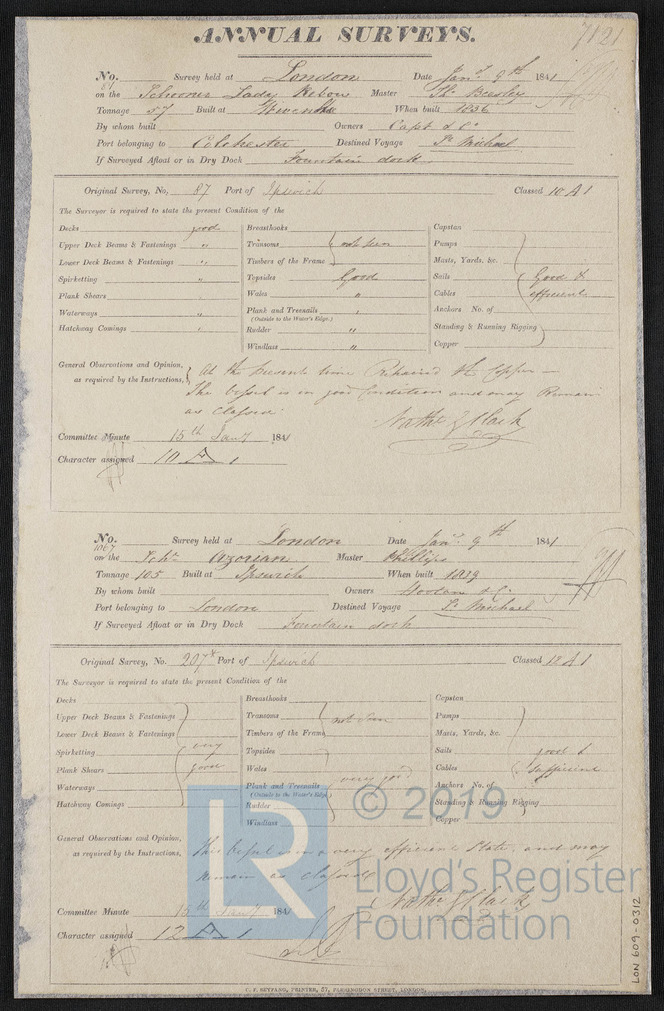 7121
ANNUAL SURVEYS.
No. 81 Survey held at London Date Jany. 9th 1841
on the Schooner Lady Rebow Master Thos. Beesley
Tonnage 57 Built at Wivenhoe When built 1836
By whom built Owners Capt & Co
Port belonging to Colchester Destined Voyage St. Michael
If Surveyed Afloat or in Dry Dock Fountain dock
Original Survey, No, 87 Port of Ipswich Classed 10 A 1
The Surveyor is required to state the present Condition of the
Decks good Breasthooks Capstan
Upper Deck Beams & Fastenings " Transoms not seen Pumps
Lower Deck Beams & Fastenings " Timbers of the Frame Masts, Yards, &c.
Spirketting " Topsides Good Sails Good &
Plank Shears Wales " Cables efficient
Waterways Plank and Treenails (Outside to the Water's Edge.) Anchors No. of
Hatchway Comings Rudder " Standing & Running Rigging
Windlass " Copper
General Observations and Opinion, At the present time Repaired the Copper —
as required by the Instructions, The Vessel is in good Condition and may Remain
as classed
Nathl. G Clark
Committee Minute 15th Jany 1841
Character assigned 10 A 1
No. 1067 Survey held at London Date Jany. 9th 1841
on the Schr. Azorian Master Phillips
Tonnage 105 Built at Ipswich When built 1839
By whom built Owners & Co.
Port belonging to London Destined Voyage St. Michael
If Surveyed Afloat or in Dry Dock Fountain dock
Original Survey, No. 207 Port of Ipswich Classed 12 A 1
The Surveyor is required to state the present Condition of the
Decks Breasthooks Capstan
Upper Deck Beams & Fastenings Transoms not seen Pumps
Lower Deck Beams & Fastenings Timbers of the Frame Masts, Yards, &c.
Spirketting very Topsides Sails good &
Plank Shears good Wales very good Cables sufficient
Waterways Plank and Treenails (Outside to the Water's Edge.) Anchors No. of
Hatchway Comings Rudder Standing & Running Rigging
Windlass Copper
General Observations and Opinion, This Vessel is in a very efficient State and may
as required by the Instructions, remain as classed
Nathl. G Clark
Committee Minute 15th Jany 1841
Character assigned 12 A 1
LR © 2019
Lloyd's Register
Foundation
LON 609-0312
C. F. SEYFANG, PRINTER, 57, FARRINGDON STREET, LONDON.